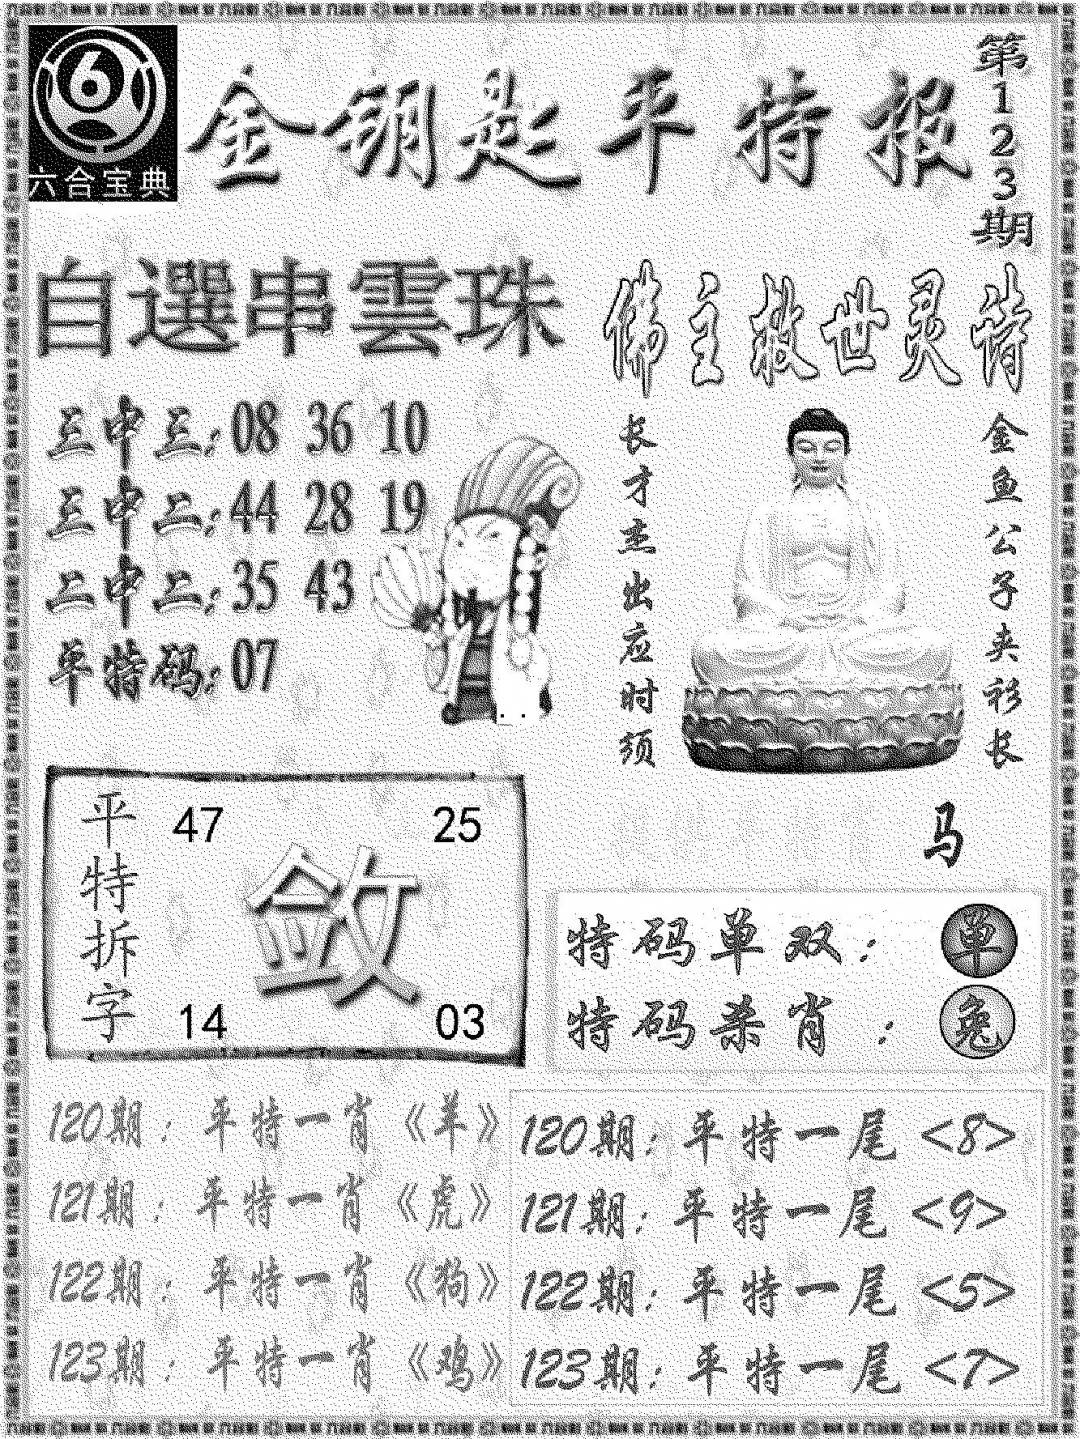 6
六合宝典
金钥匙平特报
第123期
自選串雲珠
三中三:08 36 10
三中二:44 28 19
二中二:35 43
单特码:07
佛主救世灵诗
金鱼公子夹衫长
长才杰出应时须
马
平特拆字
47 25
敛
14 03
特码单双:单
特码杀肖:兔
120期:平特一肖《羊》
121期:平特一肖《虎》
122期:平特一肖《狗》
123期:平特一肖《鸡》
120期:平特一尾<8>
121期:平特一尾<9>
122期:平特一尾<5>
123期:平特一尾<7>